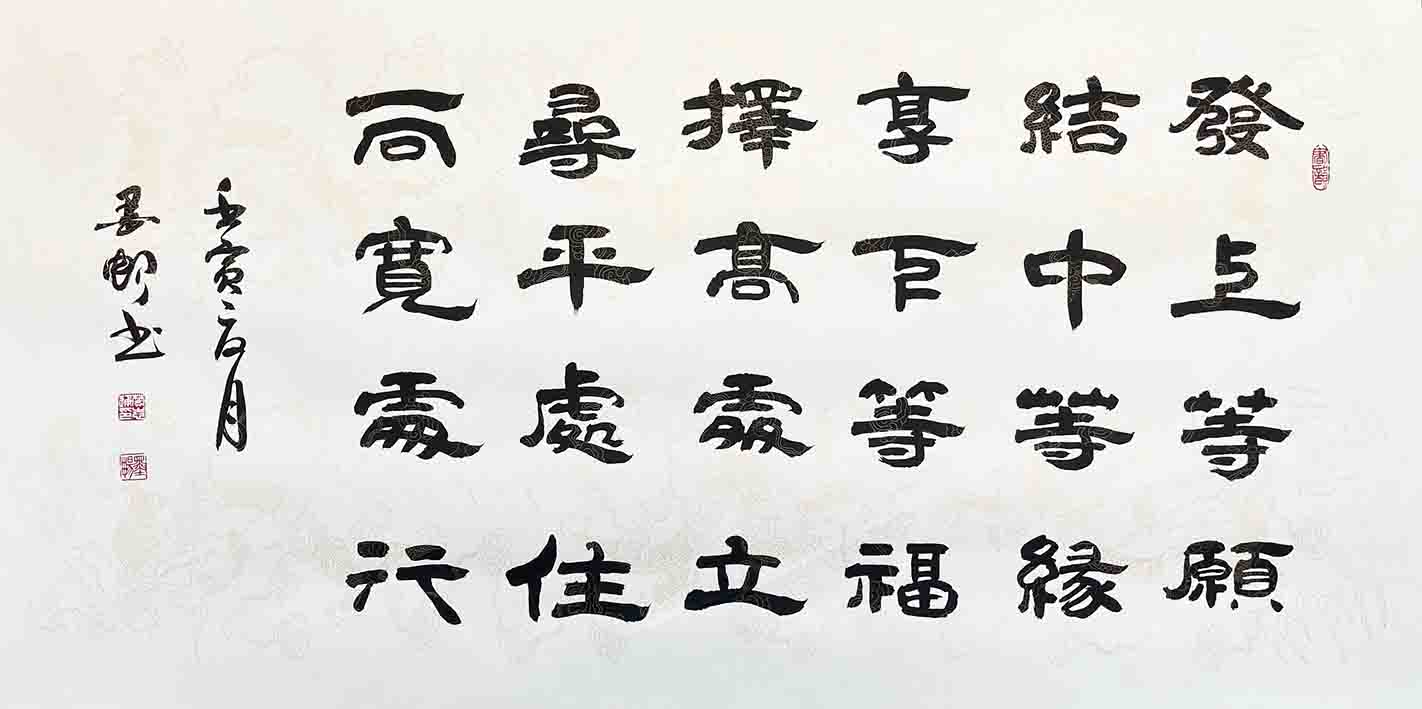 發上等願
結中等緣
享下等福
擇高處立
尋平處住
向寬處行
壬寅月
墨卿书